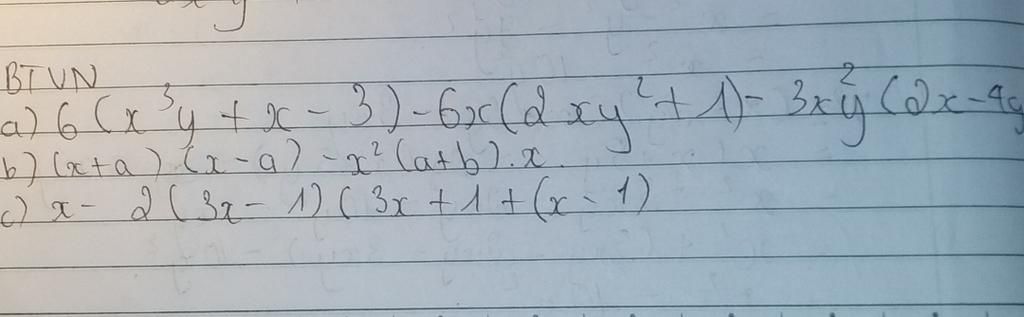 y
BTVN
a) 6 (x³y + x - 3) - 6x(2xy² + 1) - 3x²y (2x - 4y
b) (x+a) (x-a) - x² (a+b) . x.
c) x - 2 (3x - 1) (3x + 1 + (x - 1)